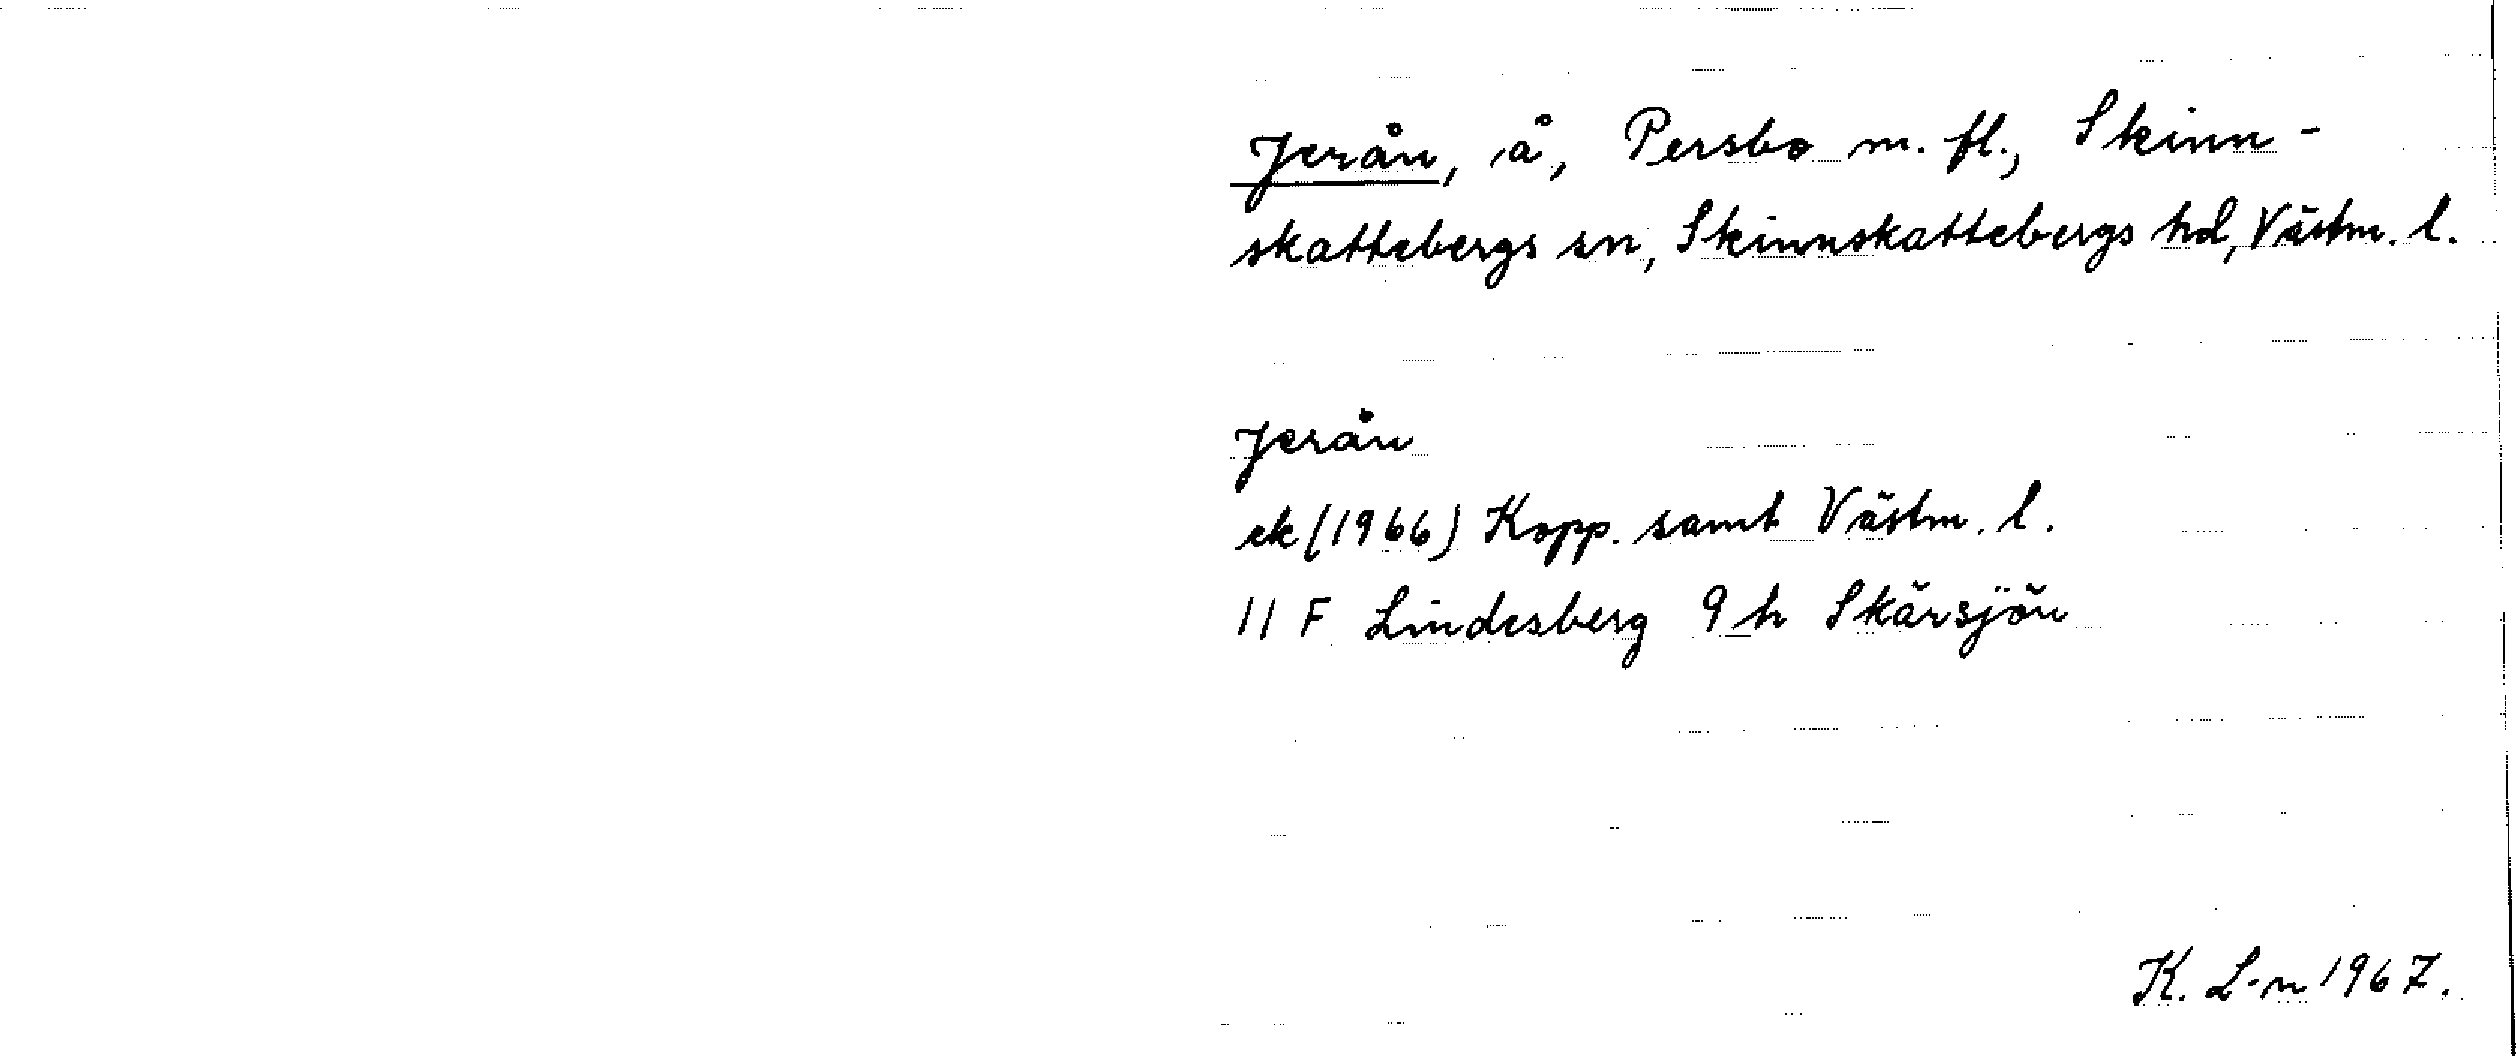 Jerån, å, Persbo m. fl., Skinn-
skattebergs sn, Skinnskattebergs hd, Västm. l.
Jerån
ek (1966) Kopp. samt Västm. l.
11 F Lindesberg 9 h Skärsjön
K. L-n 1967.